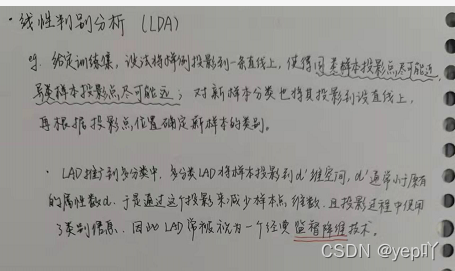 · 线性判别分析 (LDA)
eg. 给定训练集，设法将样例投影到一条直线上，使得同类样本投影点尽可能近，
异类样本投影点尽可能远；对新样本分类也将其投影到该直线上，
再根据投影点位置确定新样本的类别。
· LAD推广到多分类中，多分类LAD将样本投影到d'维空间，d'通常小于原有
的属性数d．于是通过这个投影来减少样本点维数，且投影过程中使用
了类别信息．因此LAD常被视为一个经典监督降维技术。
CSDN @yep吖